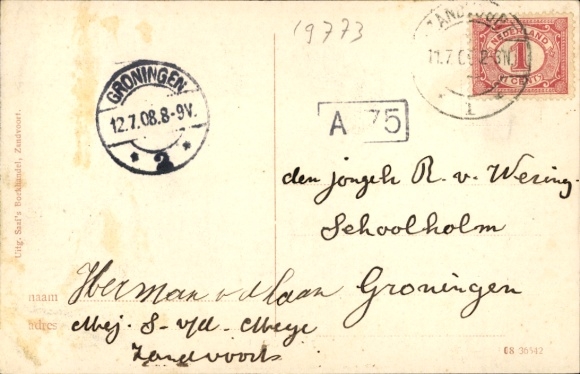 19773
ZANDVOORT
11.7.08.
1
NEDERLAND
1
CENT
GRONINGEN
12.7.08.8-9V.
* 2 *
A 75
den jongeh R. v. Wering
Schoolholm
Groningen
naam Herman v d Laan
adres Mej. S. v/d. Meye
Zandvoort
Uitg. Saal's Boekhandel, Zandvoort.
08 36542